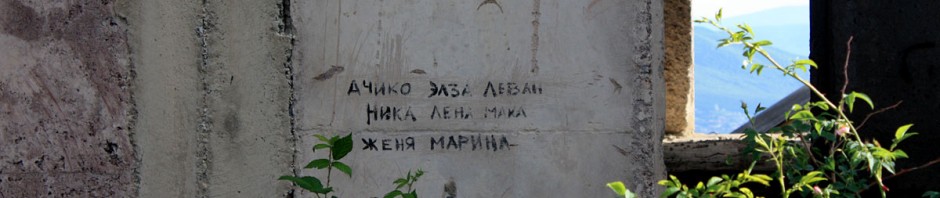 АЧИКО ЭЛЗА ЛЕВАН
НИКА ЛЕНА МАКА
ЖЕНЯ МАРИНА